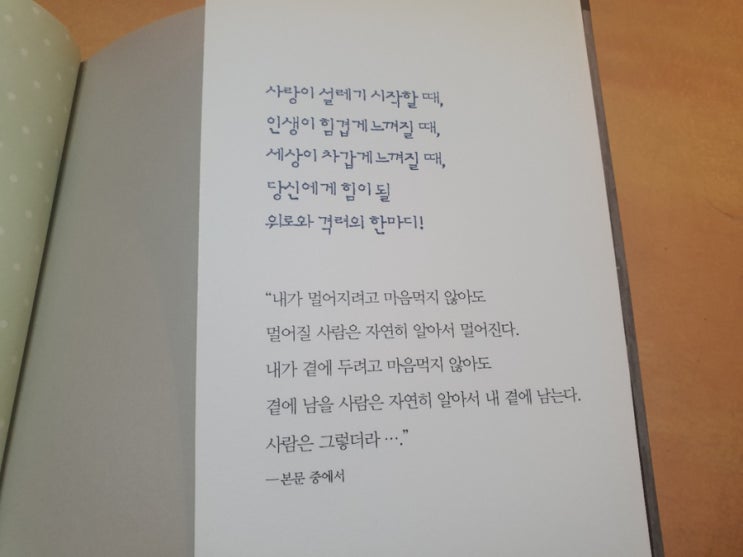 사랑이 설레기 시작할 때,
인생이 힘겹게 느껴질 때,
세상이 차갑게 느껴질 때,
당신에게 힘이 될
위로와 격려의 한마디!
“내가 멀어지려고 마음먹지 않아도
멀어질 사람은 자연히 알아서 멀어진다.
내가 곁에 두려고 마음먹지 않아도
곁에 남을 사람은 자연히 알아서 내 곁에 남는다.
사람은 그렇더라 ….”
—본문 중에서